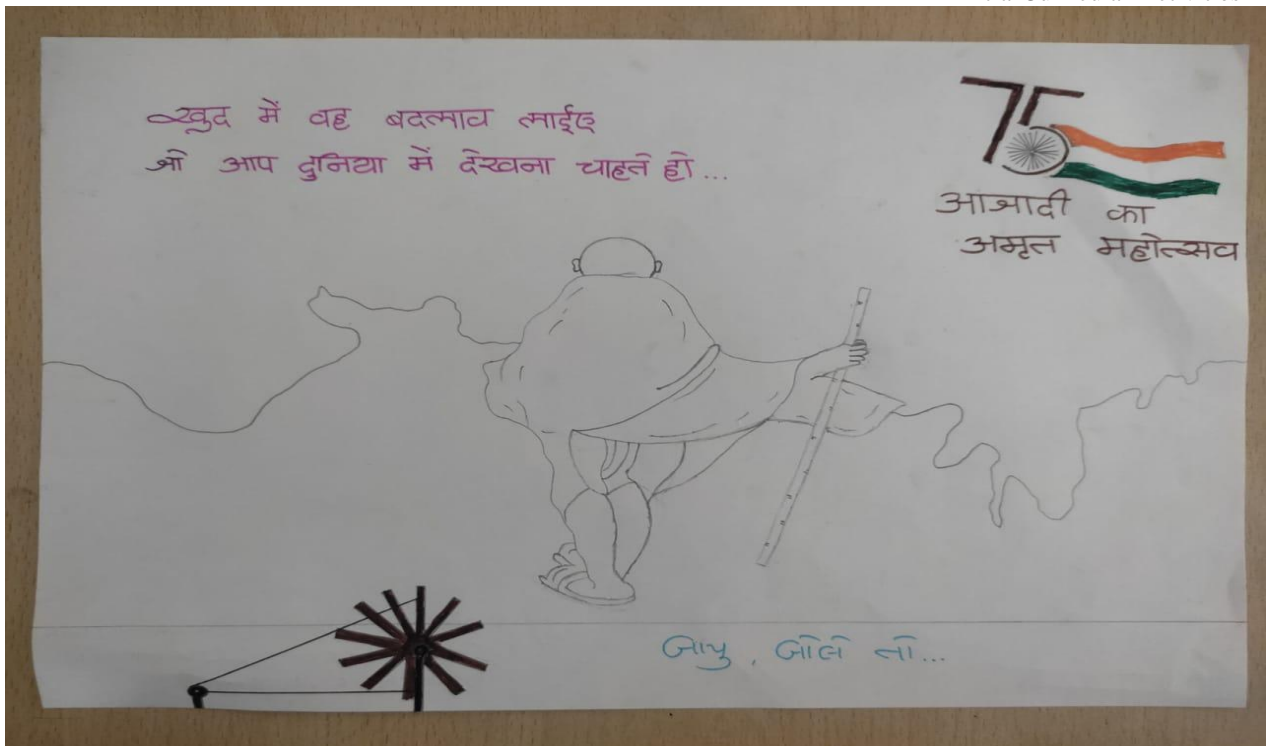 खुद में वह बदलाव लाईए
जो आप दुनिया में देखना चाहते हो...
75
आजादी का
अमृत महोत्सव
बापू, बोले तो...